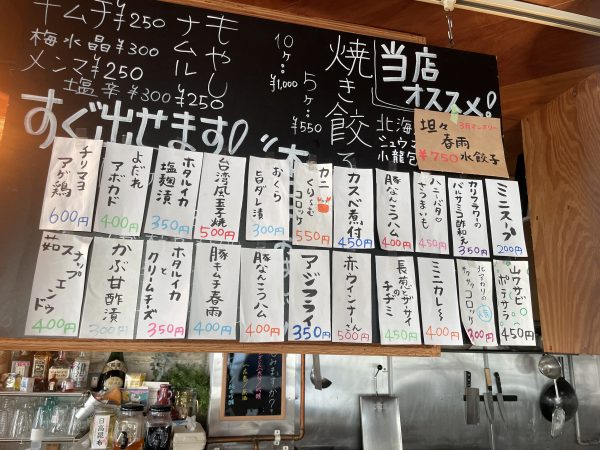 当店
オススメ!
焼き餃子
5ヶ…¥550
10ヶ…¥1,000
もやし
ナムル
¥250
キムチ¥250
梅水晶¥300
メンマ¥250
塩辛¥300
すぐ出せます!
坦々
春雨
水餃子
¥750
ミニスープ
200円
カリフラワーの
バルサミコ酢和え
350円
ハニーバター
さつまいも
450円
豚なんこつハム
400円
カスベ煮付
450円
カニ
くりーむ
コロッケ
550円
おくら
旨ダレ漬
300円
台湾風玉子焼
500円
ホタルイカ
塩麹漬
350円
よだれ
アボカド
400円
チリマヨ
アゲ鶏
600円
山ワサビ
ポテサラ
450円
北アカリの
コロッケ
300円
ミニカレー
400円
長葱と
ザーサイ
のチヂミ
450円
赤ウインナーさん
500円
アジフライ
350円
豚なんこつハム
400円
豚キムチ春雨
400円
ホタルイカ
と
クリームチーズ
350円
かぶ甘酢漬
300円
茹スナップ
エンドウ
400円
日高昆布